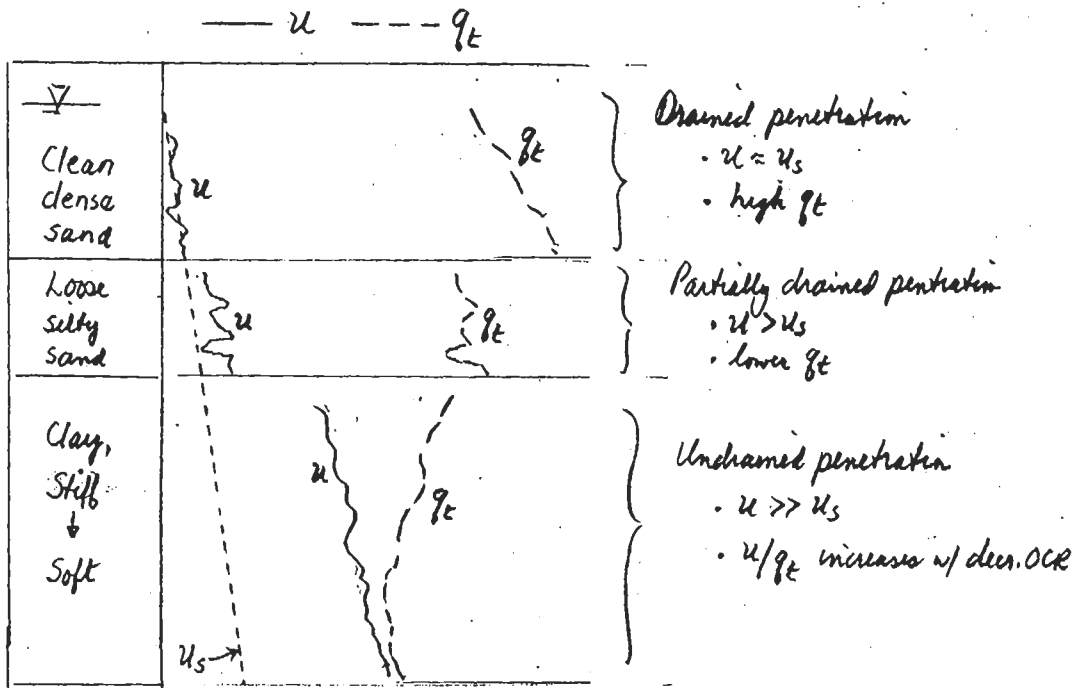 — u --- qt
Clean
dense
sand
u
qt
Drained penetration
· u ≈ us
· high qt
Loose
silty
sand
u
qt
Partially drained pentration
· u > us
· lower qt
Clay,
Stiff
↓
Soft
u
qt
us
Undrained penetration
· u >> us
· u/qt increases w/ decr. OCR